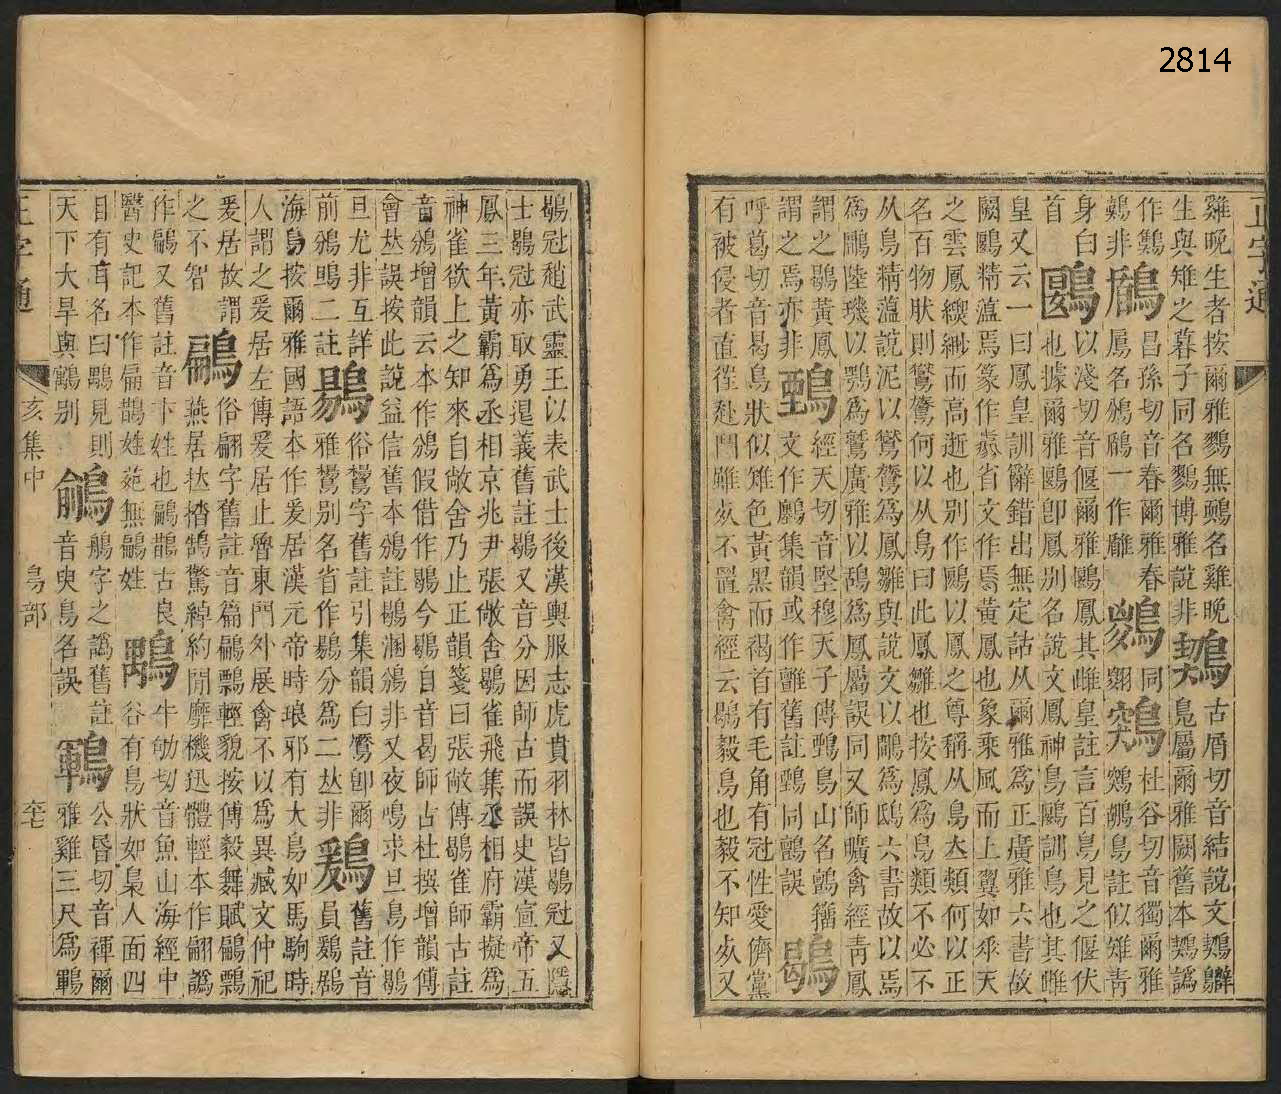 2814
正字通
雞晚生者按爾雅鷚無鷃名雞晚
生與雉之暮子同名鷚博雅說非䴶古屑切音結說文䳤
鳧屬爾雅闕舊本䴶譌
作鷒鶞昌孫切音春爾雅春
鳸名鳻鶞一作䧳
鶨非
同鵎杜谷切音獨爾雅
鵎鶘鳥註似雉青
身白首鶠以淺切音偃爾雅鶠鳳其雌皇註言百鳥見之偃伏
也據爾雅鶠卽鳳別名說文鳳神鳥鶠訓鳥也其雌
皇又云一曰鳳皇訓辭錯出無定詁从爾雅爲正廣雅六書故
闕鶠精薀焉篆作省文作焉黃鳳也象乘風而上翼如乖天
之雲鳳緩緻而高逝也別作鶠以鳳之尊稱从鳥厺類何以正
名百物狀則鸑鷟何以从鳥曰此鳳雛也按鳳爲鳥類不必不
从鳥精薀說泥以鸑鷟爲鳳雛與說文以鷗爲鴟六書故以焉
爲鷳陸璣以鶚爲鷲廣雅以鴰爲鳳屬誤同又師曠禽經青鳳
謂之鶡黃鳳謂之焉亦非鵛經天切音堅穆天子傳鵛鳥山名鷂籀
文作鸝集韻或作䨄舊註鵛同鷂誤鶡
呼葛切音曷鳥狀似雉色黃黑而褐首有毛角有冠性愛儕黨
有被侵者直徃赴鬥雖𣦸不置禽經云鶡毅鳥也毅不知𣦸又
鶡冠趙武靈王以表武士後漢輿服志虎賁羽林皆鶡冠又隱
士鶡冠亦取勇退義舊註鶡又音分因師古而誤史漢宣帝五
鳳三年黃霸爲丞相京兆尹張敞舍鶡雀飛集丞相府霸擬爲
神雀欲上之知來自敞舍乃止正韻箋曰張敞傳鶡雀師古註
音鳻增韻云本作鳻假借作鶡今鶡自音曷師古杜撰增韻傅
會厺誤按此說益信舊本鳻註鶡溷鳻非又夜鳴求旦鳥作鶡
旦尤非互詳前鳻鴠二註鶪俗鷽字舊註引集韻白鷢卽爾
雅鷽別名省作鶪分爲二厺非鶢舊註音
員鷄鶋
海鳥按爾雅國語本作爰居漢元帝時琅邪有大鳥如馬駒時
人謂之爰居左傳爰居止魯東門外展禽不以爲異臧文仲祀
爰居故謂之不智鶣俗翩字舊註音篇鶣鷅輕貌按傅毅舞賦鶣鷅
燕居拉揩鵠驚綽約閒靡機迅體輕本作翩譌
作鶣又舊註音卞姓也鶣鵲古良
醫史記本作扁鵲姓苑無鶣姓䳾牛劬切音魚山海經中
谷有鳥狀如梟人面四
目有耳名曰䳾見則
天下大旱與鸆別鵃鵃字之譌舊註
音臾鳥名誤鶤公昬切音褌爾
雅雞三尺爲鶤
正字通 亥集中 鳥部 六七